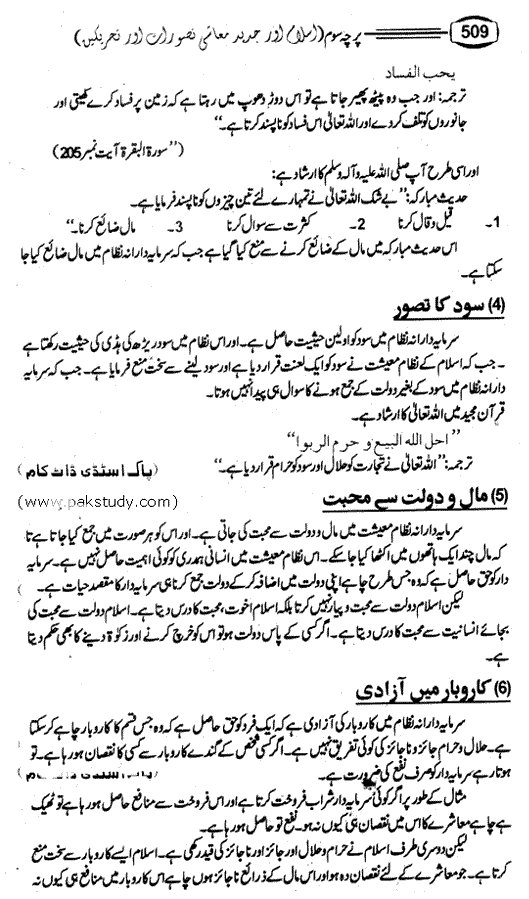 509 پرچہ سوم (اسلام اور جدید معاشی تصورات اور تحریکیں)
یحب الفساد
ترجمہ: اور جب وہ پیٹھ پھیر جاتا ہے تو اس دوڑ دھوپ میں رہتا ہے کہ زمین پر فساد کرے کھیتی اور
جانوروں کو تلف کر دے اور اللہ تعالیٰ اس فساد کو ناپسند کرتا ہے۔"
("سورۃ البقرۃ آیت نمبر 205)
اور اسی طرح آپ صلی اللہ علیہ وآلہ وسلم کا ارشاد ہے:
حدیث مبارکہ: "بے شک اللہ تعالیٰ نے تمہارے لئے تین چیزوں کو ناپسند فرمایا ہے۔
1- قیل و قال کرنا 2- کثرت سے سوال کرنا 3- مال ضائع کرنا۔"
اس حدیث مبارکہ میں مال کے ضائع کرنے سے منع کیا گیا ہے جب کہ سرمایہ دارانہ نظام میں مال ضائع کیا جا
سکتا ہے۔
(4) سود کا تصور
سرمایہ دارانہ نظام میں سود کو اولین حیثیت حاصل ہے۔ اور اس نظام میں سود ریڑھ کی ہڈی کی حیثیت رکھتا ہے
۔ جب کہ اسلام کے نظام معیشت نے سود کو ایک لعنت قرار دیا ہے اور سود لینے سے سخت منع فرمایا ہے۔ جب کہ سرمایہ
دارانہ نظام میں سود کے بغیر دولت کے جمع ہونے کا سوال ہی پیدا نہیں ہوتا۔
قرآن مجید میں اللہ تعالیٰ کا ارشاد ہے۔
"احل الله البيع و حرم الربوا"
ترجمہ: "اللہ تعالیٰ نے تجارت کو حلال اور سود کو حرام قرار دیا ہے۔ (پاک اسٹڈی ڈاٹ کام)
(5) مال و دولت سے محبت (www.pakstudy.com)
سرمایہ دارانہ نظام معیشت میں مال و دولت سے محبت کی جاتی ہے۔ اور اس کو ہر صورت میں جمع کیا جاتا ہے تا
کہ مال چند ایک ہاتھوں میں اکٹھا کیا جا سکے۔ اس نظام معیشت میں انسانی ہمدری کو کوئی اہمیت حاصل نہیں ہے۔ سرمایہ
دار کو حق حاصل ہے کہ وہ جس طرح چاہے اپنی دولت میں اضافہ کرے دولت جمع کرنا ہی سرمایہ دار کا مقصد حیات ہے۔
لیکن اسلام دولت سے محبت و پیار نہیں کرتا بلکہ اسلام اخوت، محبت کا درس دیتا ہے۔ اسلام دولت سے محبت کی
بجائے انسانیت سے محبت کا درس دیتا ہے۔ اگر کسی کے پاس دولت ہو تو اس کو خرچ کرنے اور زکوٰۃ دینے کا بھی حکم دیتا
ہے۔
(6) کاروبار میں آزادی
سرمایہ دارانہ نظام میں کاروبار کی آزادی ہے کہ ایک فرد کو حق حاصل ہے کہ وہ جس قسم کا کاروبار چاہے کر سکتا
ہے۔ حلال و حرام جائز و ناجائز کی کوئی تفریق نہیں ہے۔ اگر کسی شخص کے گندے کاروبار سے کسی کا نقصان ہو رہا ہے۔ تو
ہوتا رہے سرمایہ دار کو صرف نفع کی ضرورت ہے۔
مثال کے طور پر اگر کوئی سرمایہ دار شراب فروخت کرتا ہے اور اس فروخت سے منافع حاصل ہو رہا ہے تو ٹھیک
ہے چاہے معاشرے کا اس میں نقصان ہی کیوں نہ ہو۔ نفع تو حاصل ہو رہا ہے۔
لیکن دوسری طرف اسلام نے حرام و حلال اور جائز اور ناجائز کی قید رکھی ہے۔ اسلام ایسے کاروبار سے سخت منع
کرتا ہے۔ جو معاشرے کے لئے نقصان دہ ہو اور اس مال کے ذرائع ناجائز ہوں چاہے اس کاروبار میں منافع ہی کیوں نہ